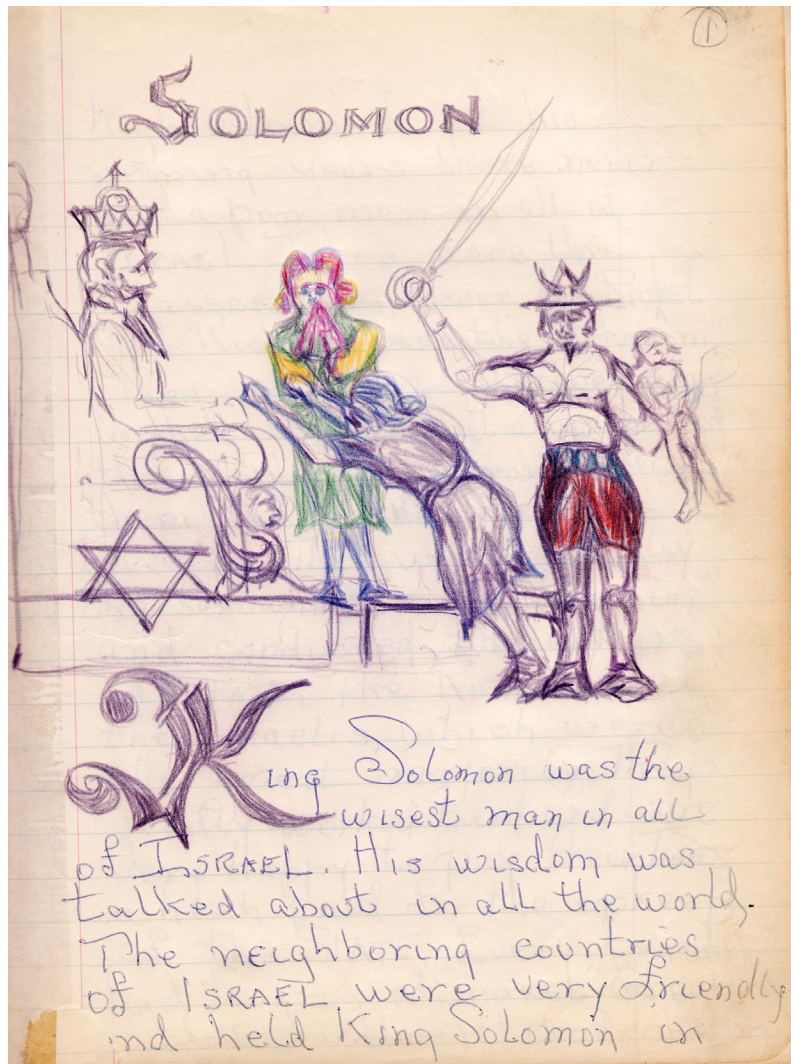 1
SOLOMON
King Solomon was the
wisest man in all
of ISRAEL. His wisdom was
talked about in all the world.
The neighboring countries
of ISRAEL were very friendly
and held King Solomon in